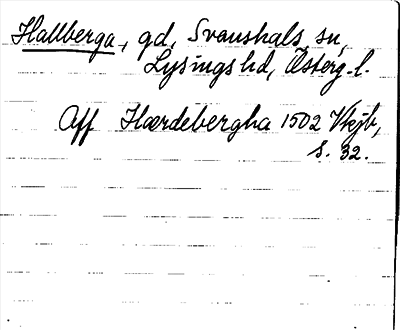 Hallberga, gd, Svanshals sn,
Lysings hd, Österg. l.
Aff Hærdebergha 1502 Vkjb,
s. 32.